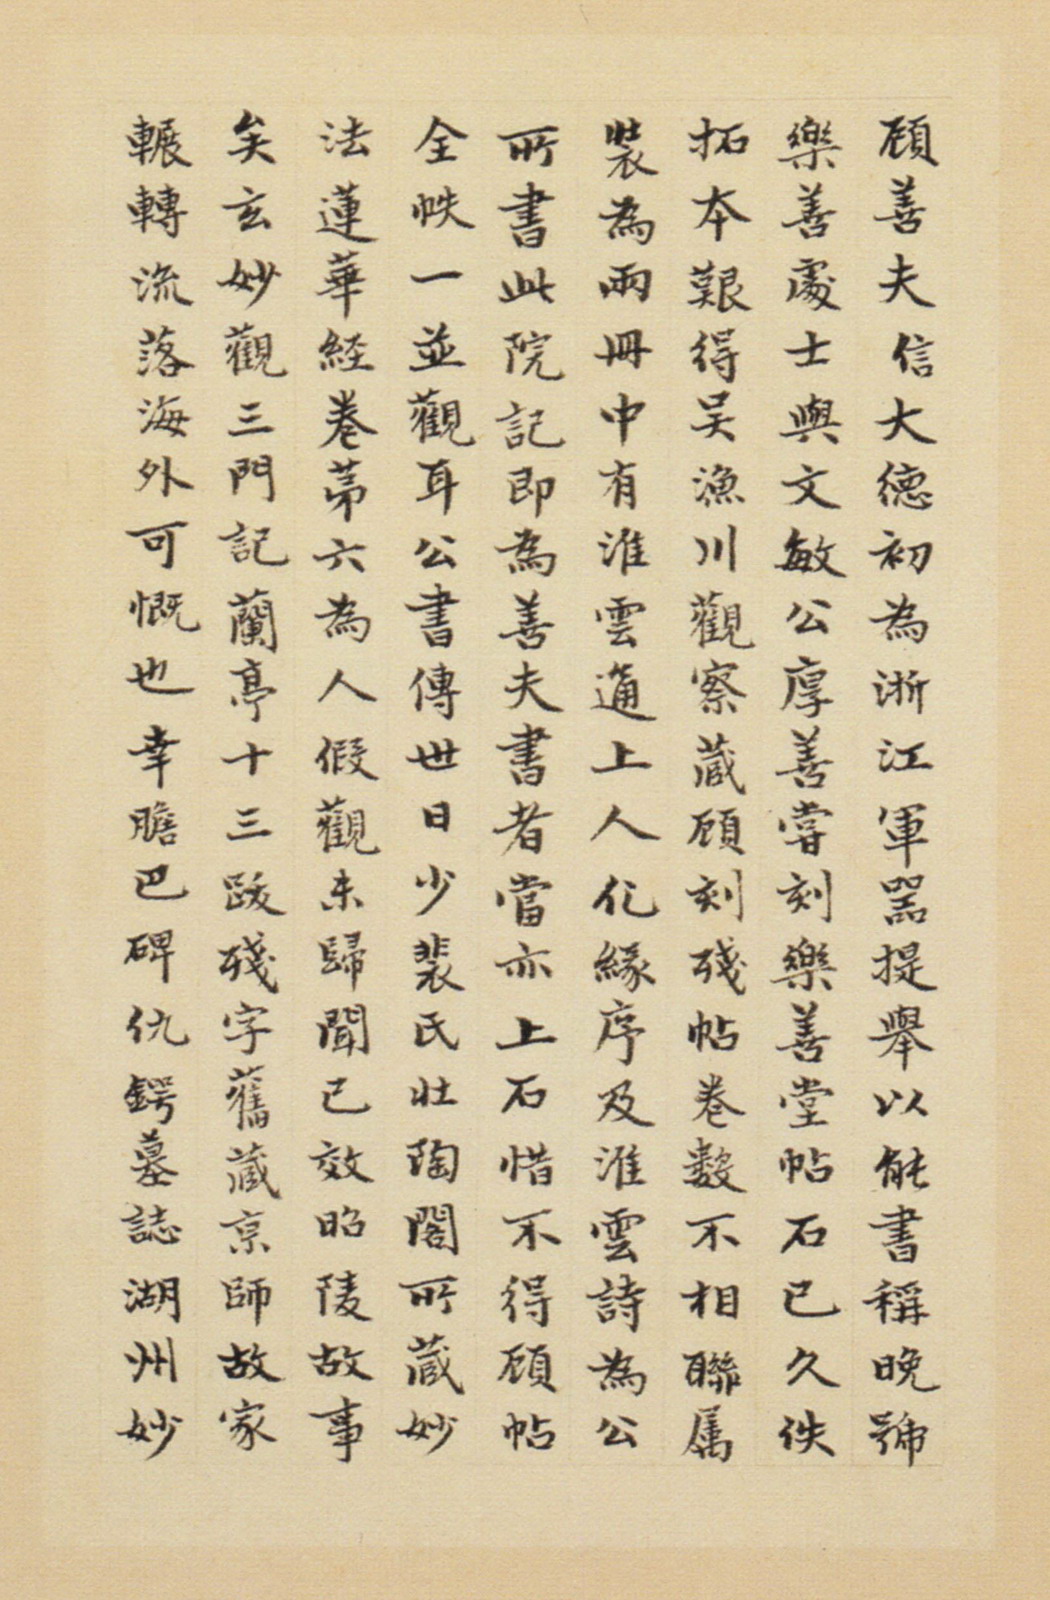 顧善夫信大德初為浙江軍器提舉以能書稱晚號
樂善處士與文敏公厚善嘗刻樂善堂帖石已久佚
拓本艱得吴漁川觀察藏顧刻殘帖卷數不相聯属
裝為兩冊中有淮雲通上人化緣序及淮雲詩為公
所書此院記即為善夫書者當亦上石惜不得顧帖
全帙一並觀耳公書傳世日少裴氏壯陶閣所藏妙
法蓮華経卷苐六為人假觀未歸聞已效昭陵故事
矣玄妙觀三門記蘭亭十三跋殘字舊藏京師故家
輾轉流落海外可慨也幸膽巴碑仇鍔墓誌湖州妙